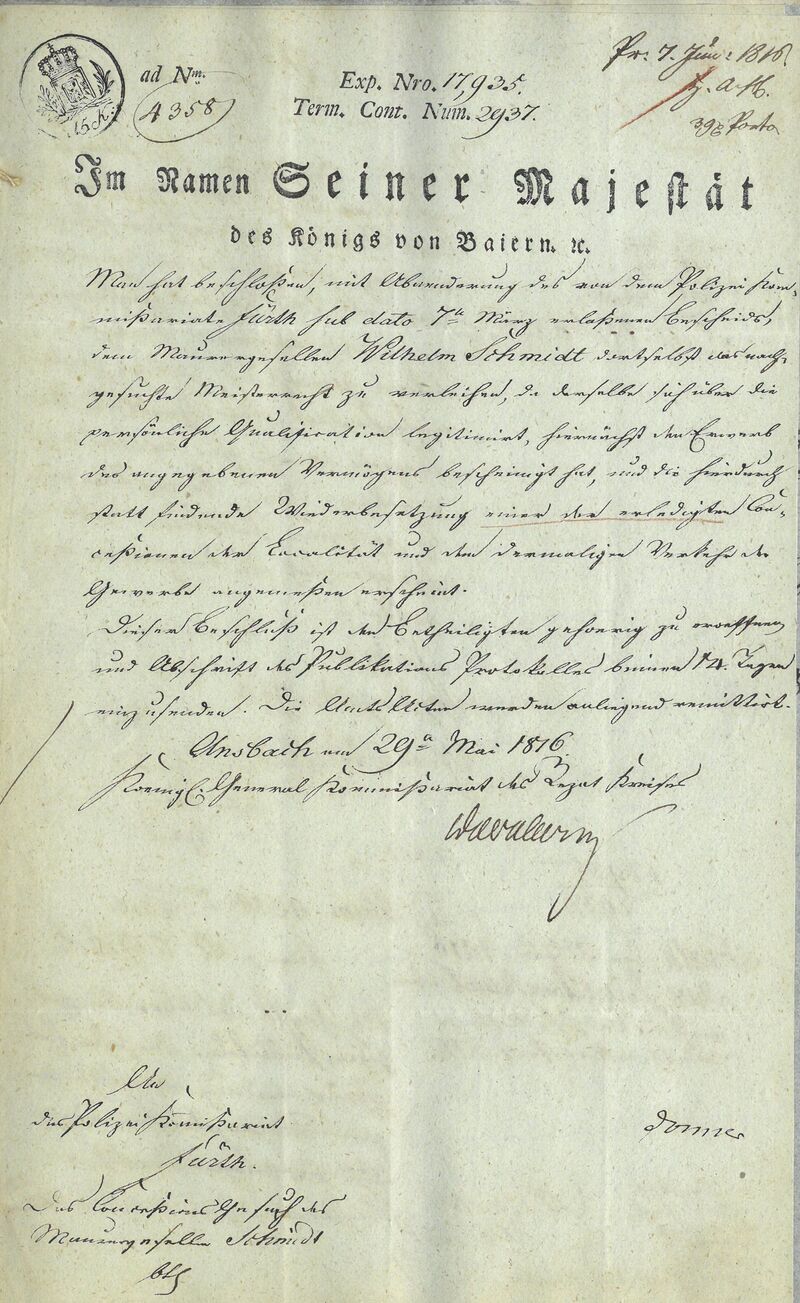 15 kr.
ad Nm.
4358
Exp. Nro. 17,935.
Term. Cont. Num. 2937.
Pr: 7. Jun: 1816.
39 Porto
Im Namen Seiner Majestät
des Königs von Baiern. ꝛc.
Man hat beschloßen, mit Abaenderung des von dem Polizei Kom-
mißariate Fürth sub dato 7ten März erlaßenen Bescheids,
dem Maurergesellen Wilhelm Schmidt dortselbst das nach-
gesuchte Meisterrecht zu verleihen, da derselbe sich über die
persönliche Qualification legitimirt, hiernächst den Erwerb
des angegebenen Vermögens bescheinigt hat, und die hierdurch
statt findende Wiederbesetzung einer der erledigten Con-
ceßionen der Localität und dem dermaligen Verkehr der
Gewerbe angemeßen erscheint.
Dieser Beschluß ist den Betheiligten gehoerig zu eroeffnen
und Abschrift des Publikations Protokolles binnen 14. Tagen
einzusenden. Die Amts Acten werden anliegend remittirt.
Ansbach am 29n Mai 1816.
Koenigl. General Kommißariat des Rezat Kreises
An
das Polizei Komißariat
Fürth.
Donner
Das Conceßions Gesuch des
Maurergesellen Schmidt
btf